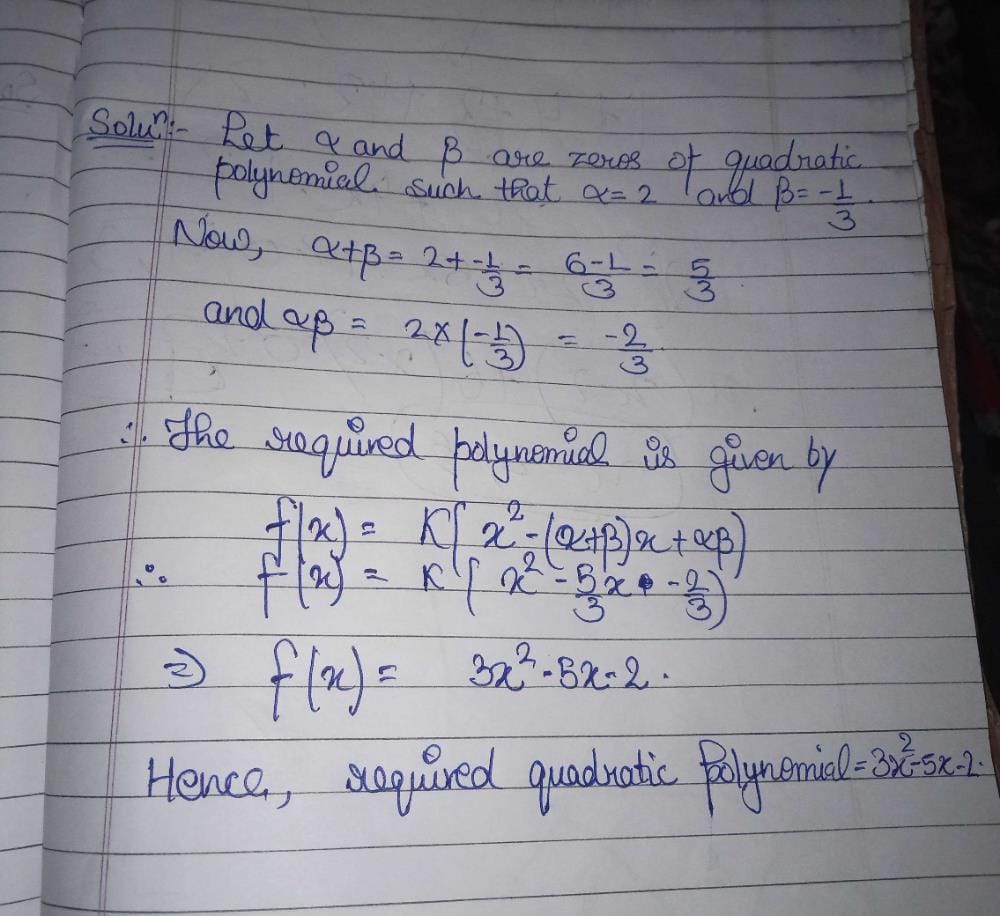 Soluⁿ:- Let α and β are zeros of quadratic
polynomial such that α = 2 and β = -1/3.
Now, α+β = 2 + -1/3 = 6-1/3 = 5/3
and αβ = 2×(-1/3) = -2/3
∴ The required polynomial is given by
f(x) = K(x² - (α+β)x + αβ)
∴ f(x) = K(x² - 5/3x - 2/3)
⇒ f(x) = 3x² - 5x - 2.
Hence, required quadratic Polynomial = 3x² - 5x - 2.